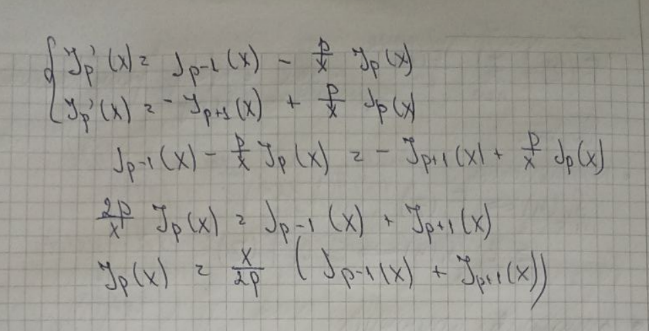 { J_p'(x) = J_{p-1}(x) - p/x J_p(x)
J_p'(x) = - J_{p+1}(x) + p/x J_p(x)
J_{p-1}(x) - p/x J_p(x) = - J_{p+1}(x) + p/x J_p(x)
2p/x J_p(x) = J_{p-1}(x) + J_{p+1}(x)
J_p(x) = x/2p (J_{p-1}(x) + J_{p+1}(x))